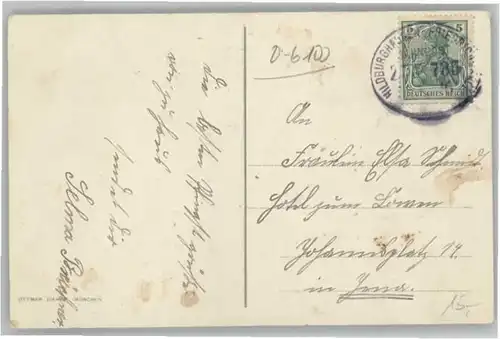 die besten Pfingstgrüße
von zu Haus
sendet dir
Selma
OTTMAR ZIEHER, MÜNCHEN
0-6100
HILDBURGHAUSEN
5
785
DEUTSCHES REICH
An
Fräulein Elsa Schmidt
Hotel zum Löwen
Johannisplatz 14.
in Jena.
15,-